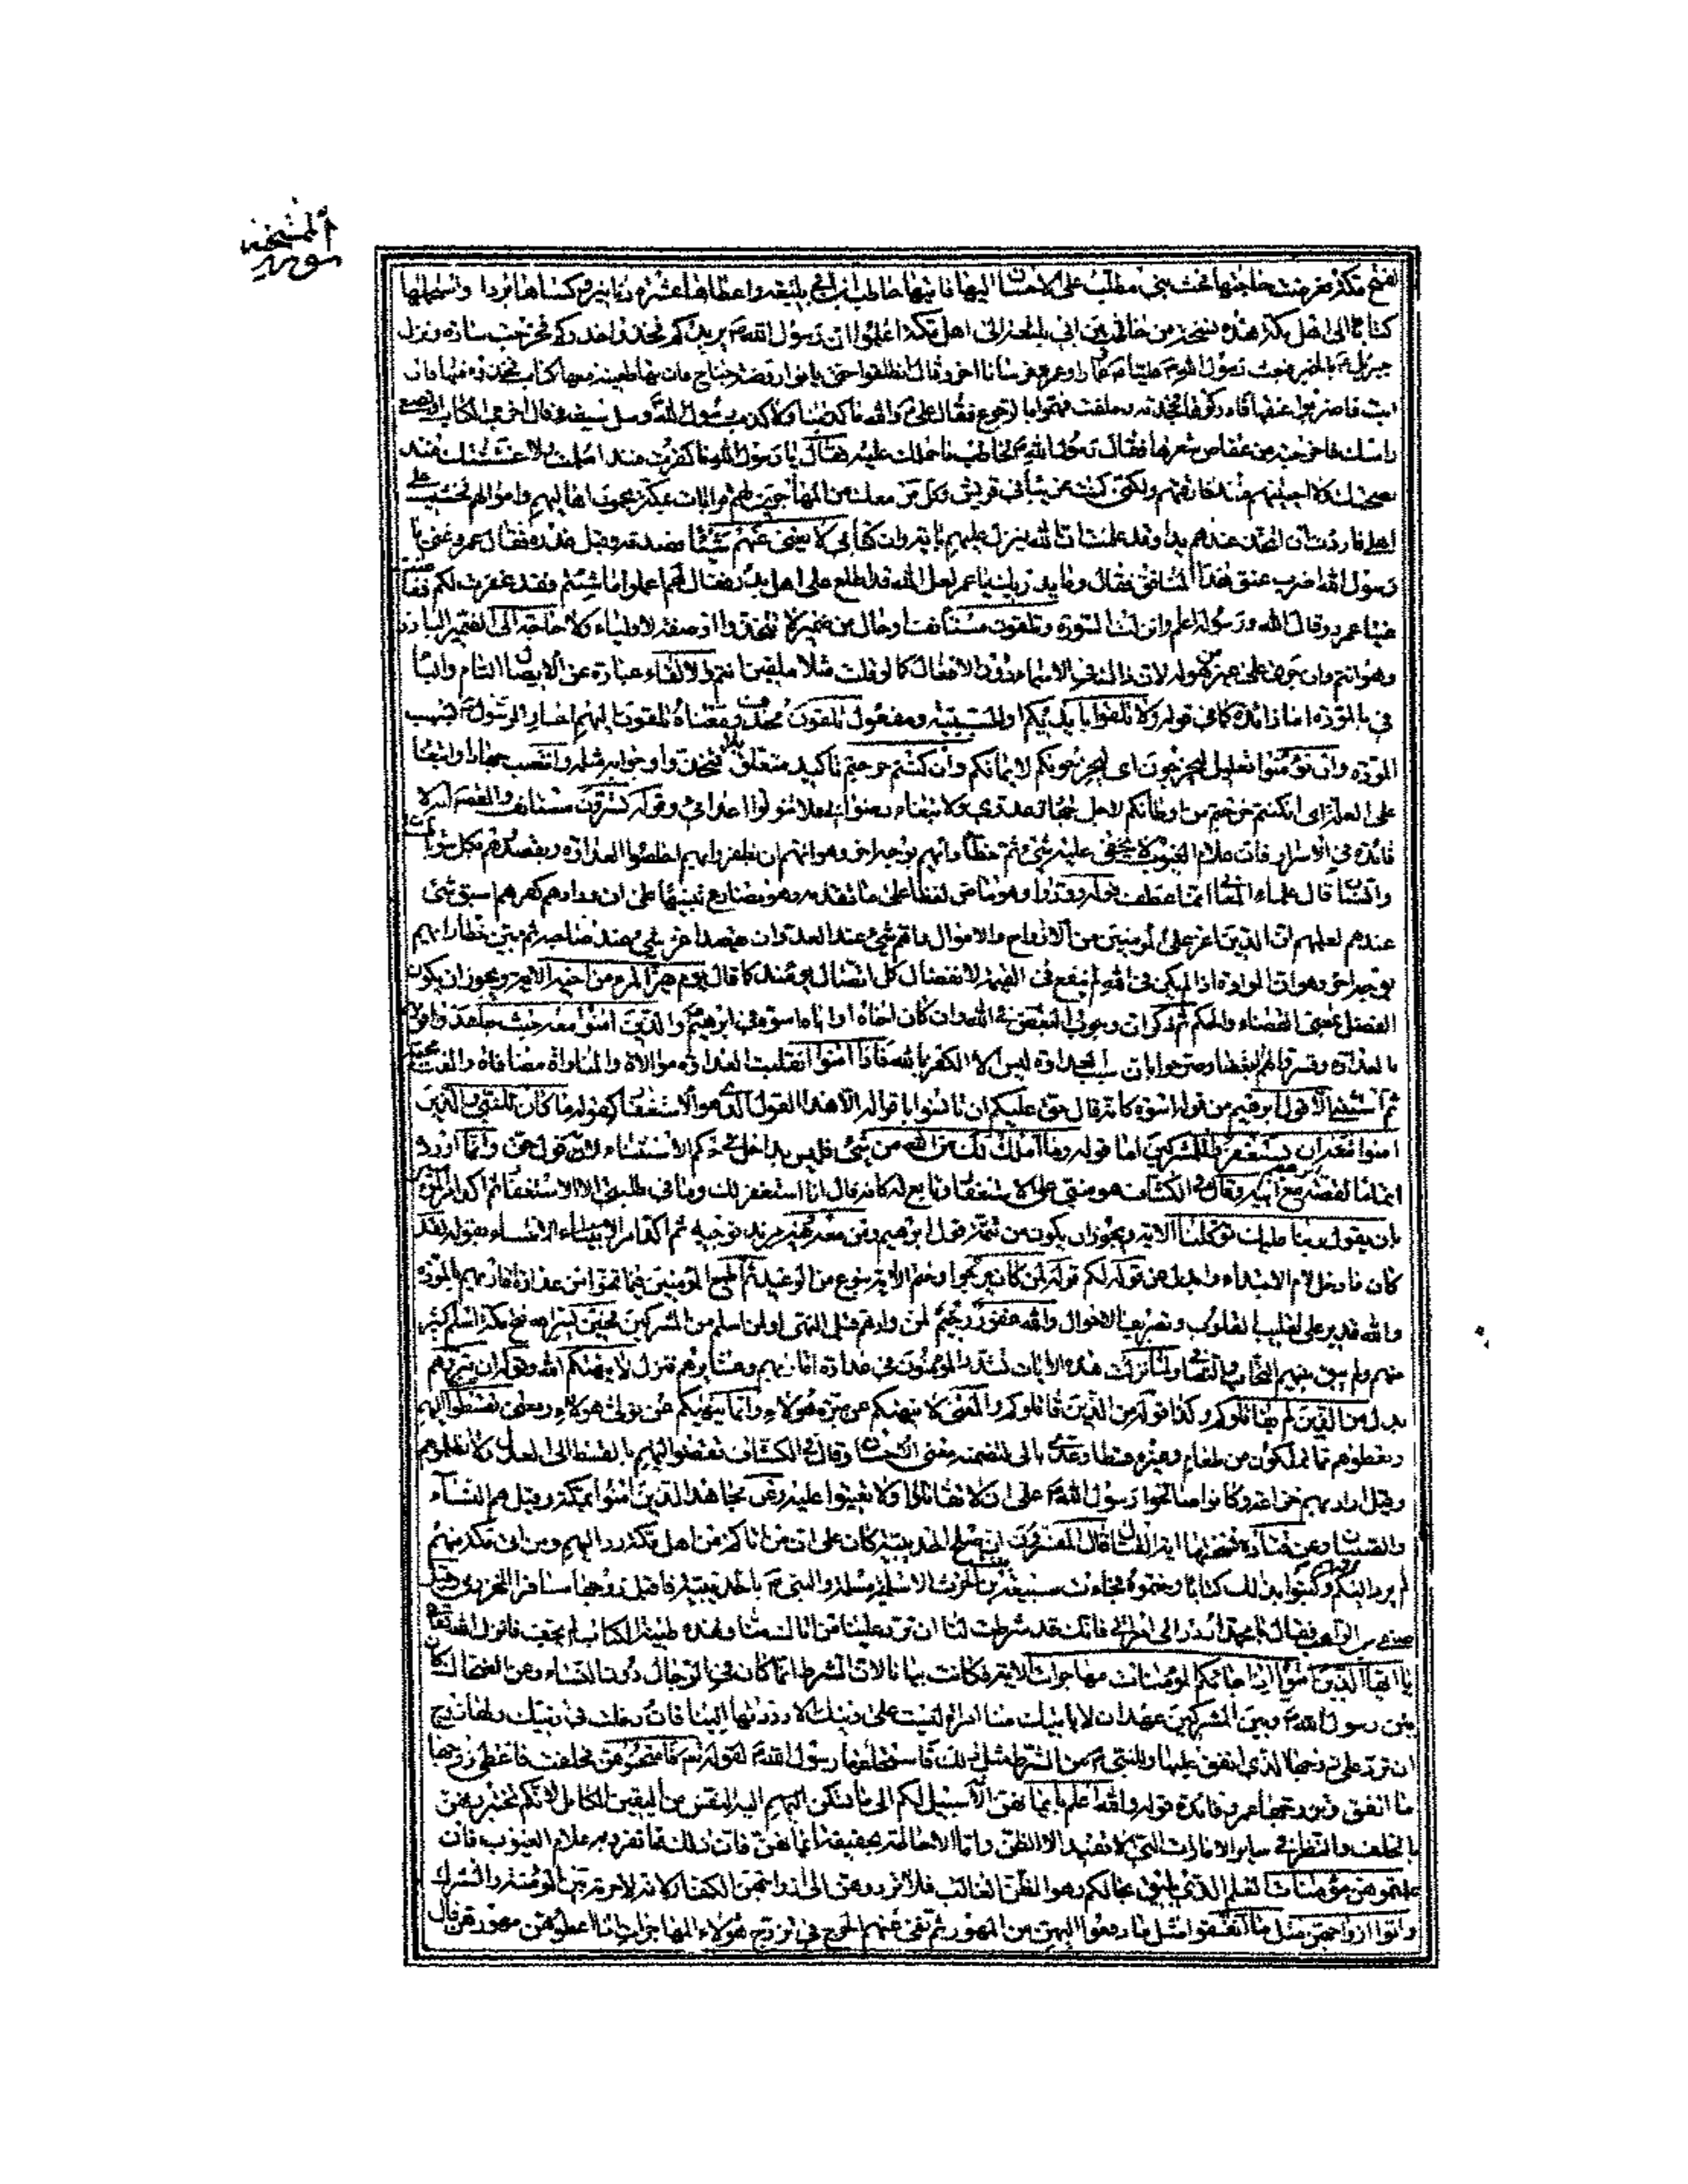 سورة الممتحنة
لفتح مكة فعرضت حاجتها فحث بني مطلب على الاحسان اليها فاتيها حاطب بن ابي بلتعه واعطاها عشرة دنانير وكساها بردا واستحملها
كتابا الى اهل مكة هذه نسخته من حاطب بن ابي بلتعة الى اهل مكة اعلموا ان رسول الله يريدكم فخذوا حذركم فخرجت سارة ونزل
جبرئيل بالخبر فبعث رسول الله عليا وعمارا وعمر وفرسانا اخر وقال انطلقوا حتى تاتوا روضة خاخ فان بها ظعينة معها كتاب فخذوه منها فان
ابت فاضربوا عنقها فادركوها فجحدت وحلفت فهموا بالرجوع فقال علي والله ما كذبنا ولا كذب رسول الله وسل سيفه وقال اخرجي الكتاب او تضعي
راسك فاخرجته من عقاص شعرها فقال رسول الله لحاطب ما حملك عليه فقال يا رسول الله ما كفرت منذ اسلمت ولا غششتك منذ
نصحتك ولا احببتهم منذ فارقتهم ولكني كنت غريبا في قريش وكل من معك من المهاجرين لهم قرابات بمكة يحمون اهاليهم واموالهم فخشيت على
اهلي فاردت ان اتخذ عندهم يدا وقد علمت ان الله ينزل عليهم باسه وان كتابي لا يغني عنهم شيئا فصدقه وقبل عذره فقال عمر دعني يا
رسول الله اضرب عنق هذا المنافق فقال وما يدريك يا عمر لعل الله قد اطلع على اهل بدر فقال لهم اعملوا ما شئتم فقد غفرت لكم ففاضت
عينا عمر وقال الله ورسوله اعلم وانزلت السورة وتلقون مستأنف او حال من ضمير لا تتخذوا او صفة لاولياء ولا حاجة الى الضمير البارز
وهو انتم وان جرى على غير من هو له لان ذلك في الاسماء دون الافعال كما لو قلت مثلا ملقين انتم والالقاء عبارة عن الايصال التام والباء
في بالمودة اما زائدة كما في قوله ولا تلقوا بايديكم او للسببية ومفعول تلقون محذوف معناه تلقون اليهم اخبار الرسول بسبب
المودة وان تؤمنوا تعليل ليخرجون اي يخرجونكم لايمانكم وان كنتم خرجتم تاكيد متعلق بلا تتخذوا وجوابه مثله وانتصب جهادا وابتغاء
على العلة اي ان كنتم خرجتم من اوطانكم لاجل جهاد عدوي ولابتغاء رضواني فلا تتولوا اعدائي وقوله تسرون مستانف والقصد انه لا
فائدة في الاسرار فان علام الغيوب لا يخفى عليه شئ ثم خطأ رأيهم بوجه اخر وهو انهم ان يظفروا بهم اخلصوا العداوة ويقصدوهم بكل سوء
واللسان قال علماء المعاني انما عطف قوله وودوا وهو ماض لفظا على ما تقدمه وهو مضارع تنبيها على ان ودادهم كفرهم اسبق شئ
عندهم لعلمهم ان الدين اعز على المؤمنين من الارواح والاموال واهم شئ عند العدو ان يقصد اعز شئ عند صاحبه ثم بين خطأ رايهم
بوجه اخر وهو ان الموادة اذا لم يكن في الله لم ينفع في القيمة لانفصال كل اتصال يومئذ كما قال يوم يفر المرء من اخيه الاية ويجوز ان يكون
الفصل بمعنى القضاء والحكم ثم ذكر ان وجوب البغض في الله وان كان اخاه او اباه اسوة في ابرهيم والذين امنوا معه حيث جاهدوا قومهم
بالعداوة وقشروا لهم العصا وصرحوا بان سبب العداوة ليس الا الكفر بالله فاذا امنوا انقلبت العداوة موالاة والمناواة مصافاة والمقت محبة
ثم استثنى الا قول ابرهيم من قوله اسوة كانه قال حق عليكم ان تأتسوا باقواله الا هذا القول الذي هو الاستغفار كقوله ما كان للنبي والذين
امنوا معه ان يستغفروا للمشركين اما قوله وما املك لك من الله من شئ فليس بداخل في حكم الاستثناء لانه قول حق وانما اورده
اتماما لقصته مع ابيه وقال في الكشاف هو مبني على الاستغفار وتابع له كانه قال انا استغفر لك وما في طاقتي الا الاستغفار ثم اكد امر المؤمنين
بان يقولوا ربنا عليك توكلنا الاية ويجوز ان يكون من تتمة قول ابرهيم ومن معه وفيه مزيد توجيه ثم اكد امر الايتساء بقوله لقد
كان فادخل لام الابتداء وابدل من قوله لكم قوله لمن كان يرجوا وختم الاية بنوع من الوعيد ثم اطمع المؤمنين فيما تمنوا من عداوة اقاربهم بالمودة
والله قدير على تقليب القلوب وتصريف الاحوال والله غفور رحيم لمن وادهم قبل النهي او لمن اسلم من المشركين فحين يسر الله فتح مكة اسلم كثير
منهم ولم يبق بينهم الا التحاب والتصافي ولما نزلت هذه الايات تشدد المؤمنون في عداوة اقاربهم وعشايرهم فنزل لا ينهيكم الله وقوله ان تبروهم
بدل من الذين لم يقاتلوكم وكذا قوله من الذين قاتلوكم والمعنى لا ينهيكم عن مبرة هؤلاء وانما ينهيكم عن تولي هؤلاء ومعنى تقسطوا اليهم
وتعطوهم مما تملكون من طعام وغيره قسطا وعدي بالى لتضمنه معنى الاحسان وقال في الكشاف تقضوا اليهم بالقسط اي العدل ولا تظلموهم
وقيل اراد بهم خزاعة وكانوا صالحوا رسول الله على ان لا يقاتلوا ولا يعينوا عليه وعن مجاهد الذين امنوا بمكة وقيل هم النساء
والصبيان وعن قتادة نسختها اية القتال قال المفسرون ان صلح الحديبية كان على ان من اتاكم من اهل مكة رد اليهم ومن اتى مكة منهم
لم يرد اليكم وكتبوا بذلك كتابا وختموه فجاءت سبيعة بنت الحرث الاسلمية مسلمة والنبي بالحديبية فاقبل زوجها مسافر المخزومي وقيل
صيفي بن الراهب فقال يا محمد اردد الى امراتي فانك قد شرطت لنا ان ترد علينا من اتاك منا وهذه طينة الكتاب لم تجف فانزل الله تعالى
يا ايها الذين امنوا اذا جائكم المؤمنات مهاجرات الاية فكانت بيانا لان الشرط انما كان في الرجال دون النساء وعن الضحاك كان
بين رسول الله وبين المشركين عهد ان لا يأتيك منا امراة ليست على دينك الا رددتها الينا فان دخلت في دينك ولها زوج
ان ترد على زوجها الذي انفق عليها وللنبي من الشرط مثل ذلك فاستحلفها رسول الله لقوله تم فامتحنوهن فحلفت فاعطى زوجها
ما انفق وتزوجها عمر وفائدة قوله والله اعلم بايمانهن الا سبيل لكم الى ما تسكن اليه النفس من اليقين الكامل لانكم تختبرونهن
بالحلف والنظر في ساير الامارات التي لا تفيد الا الظن واما الاحاطة بحقيقة ايمانهن فان ذلك مما تفرد به علام الغيوب فان
علمتموهن مؤمنات العلم الذي يليق بحالكم وهو الظن الغالب فلا تردوهن الى ازواجهن الكفار لانه لا حرمة بين المؤمنة والمشرك
واتوا ازواجهن مثل ما انفقوا مثل ما دفعوا اليهن من المهور ثم نفى عنهم الحرج في تزوج هؤلاء المهاجرات اذا اعطوهن مهورهن قال